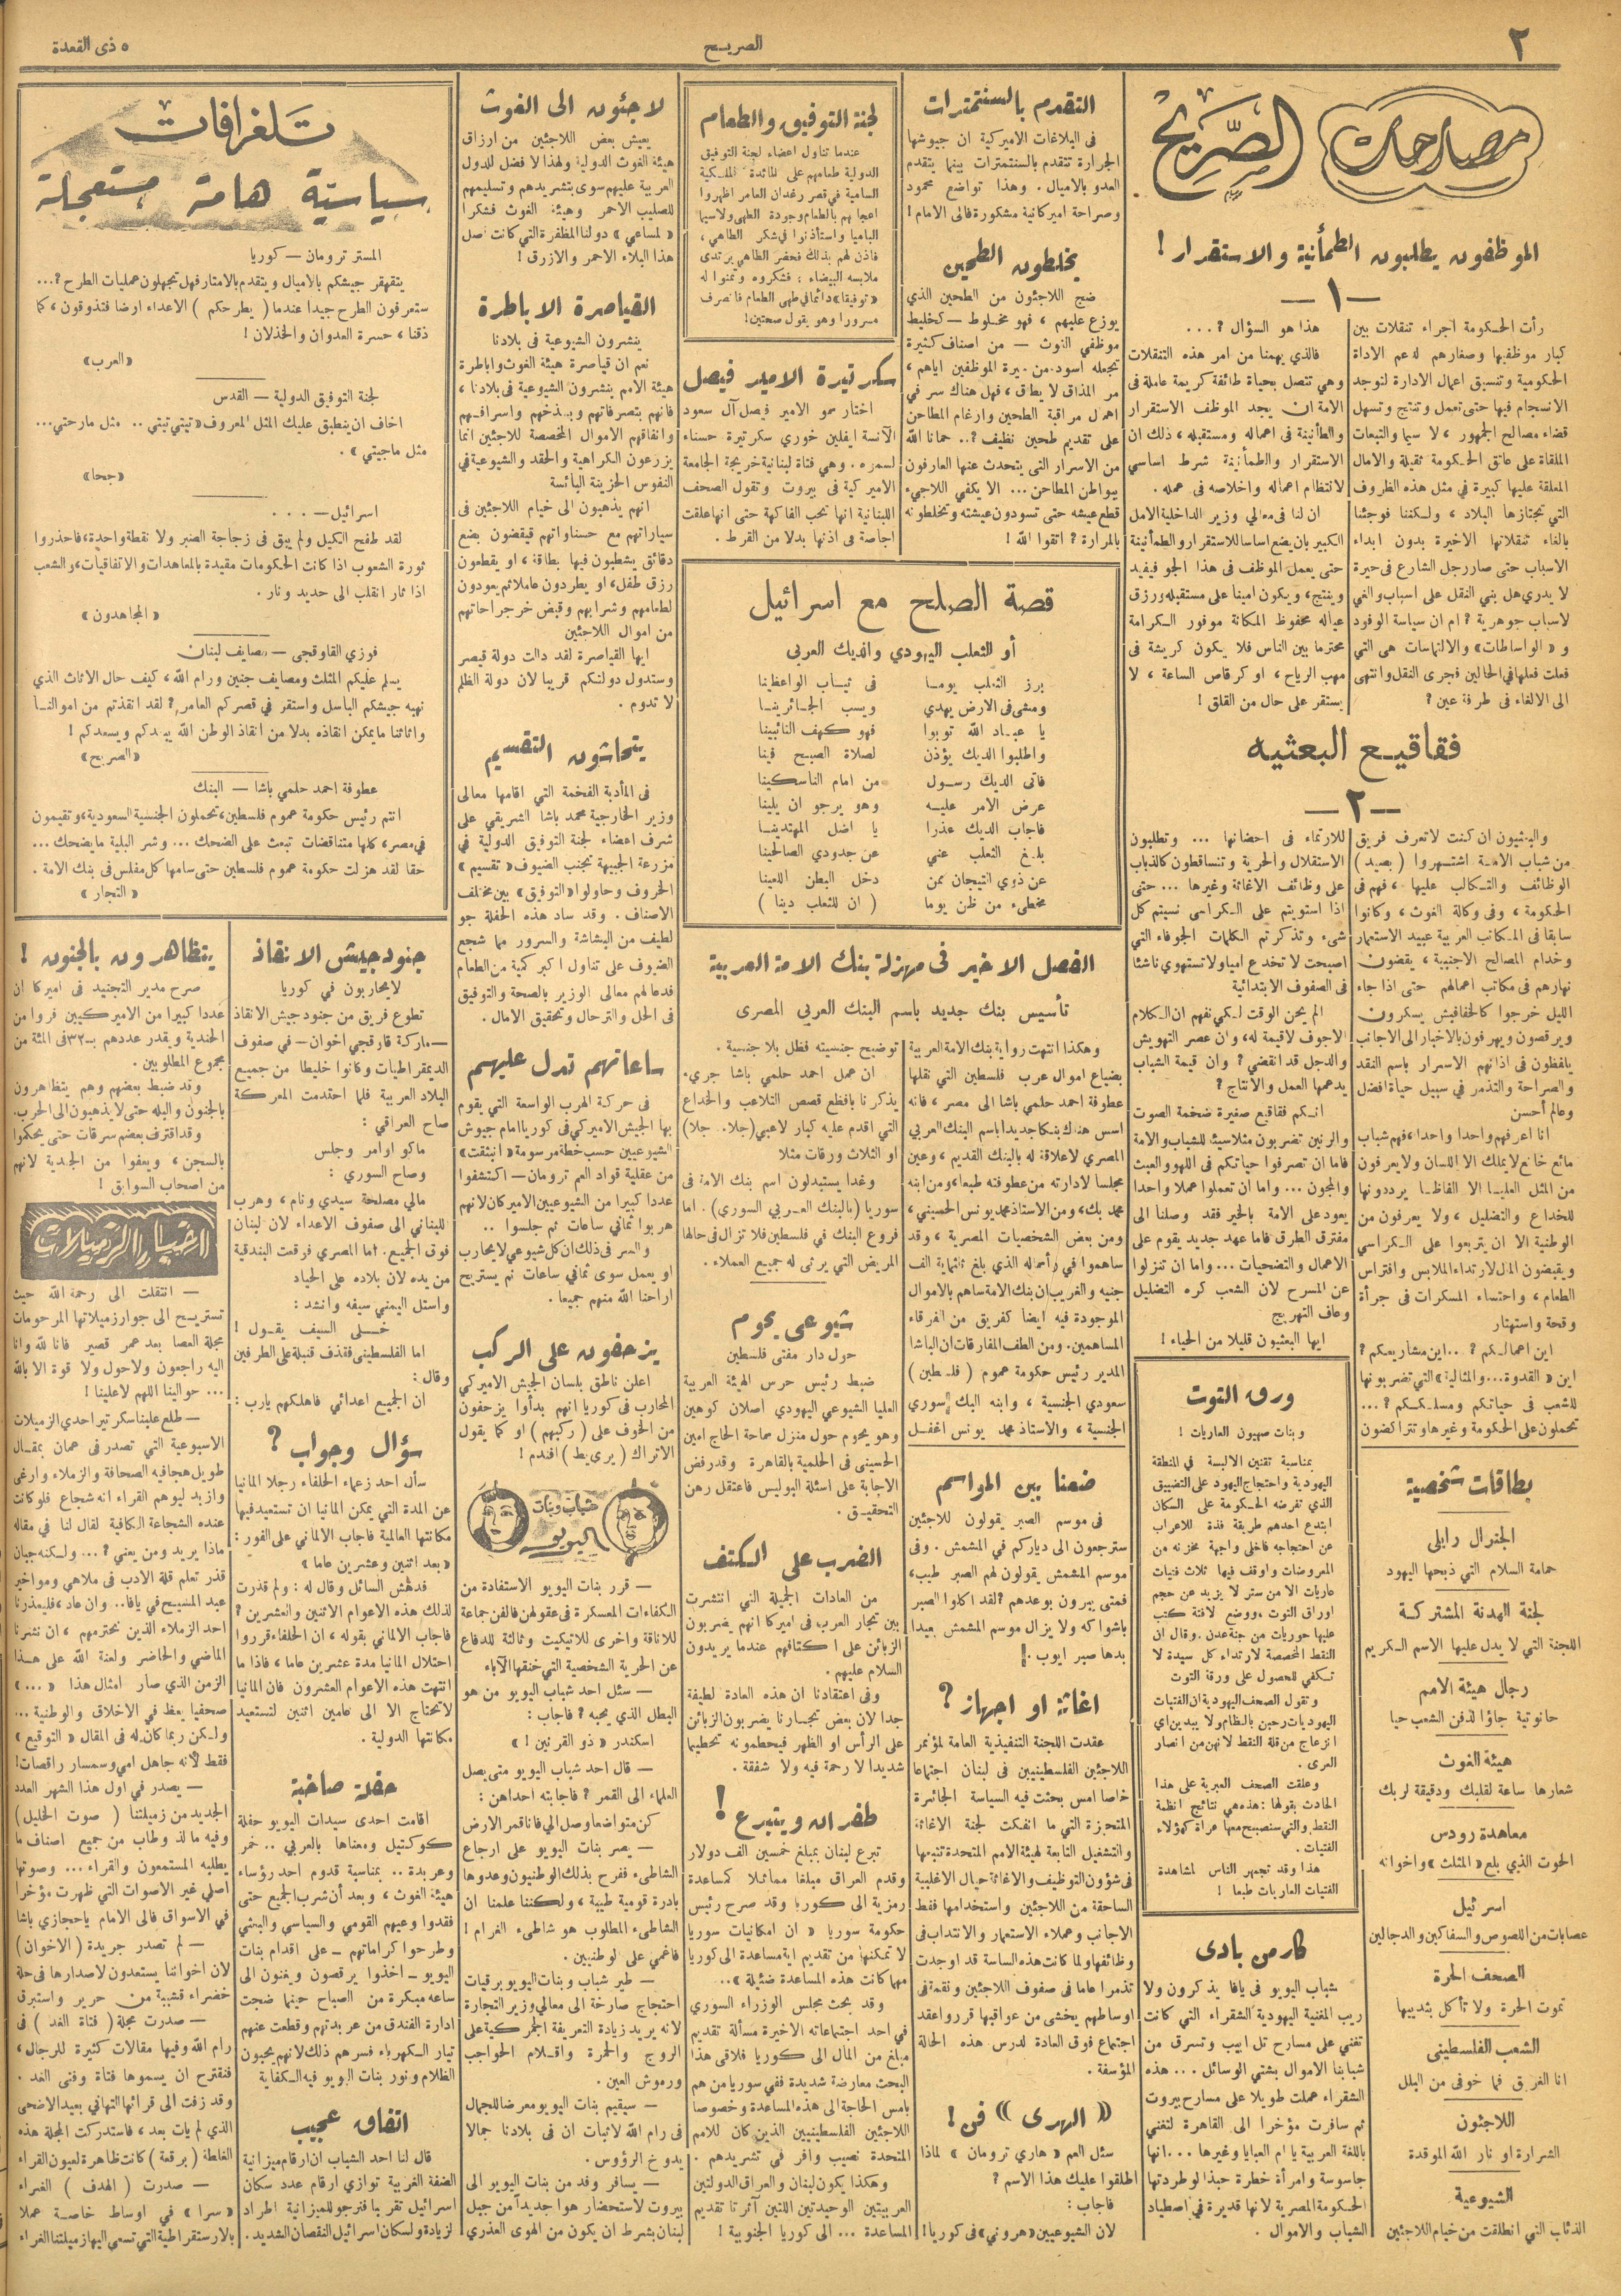 ٢
الصريح
٥ ذي القعدة
مصارحات الصريح
الموظفون يطلبون الطمأنينة والاستقرار !
— ١ —
رأت الحكومة اجراء تنقلات بين
كبار موظفيها وصغارهم لدعم الاداة
الحكومية وتنسيق اعمال الادارة لتوجد
الانسجام فيها حتى تعمل وتنتج وتسهل
قضاء مصالح الجمهور ، لا سيما والتبعات
الملقاة على عاتق الحكومة ثقيلة والامال
المعلقة عليها كبيرة في مثل هذه الظروف
التي تجتازها البلاد ، ولكننا فوجئنا
بالغاء تنقلاتها الاخيرة بدون ابداء
الاسباب حتى صار رجل الشارع في حيرة
لا يدري هل بني النقل على اسباب والغي
لاسباب جوهرية ؟ ام ان سياسة الوفود
و « الواساطات » والالتماسات هي التي
فعلت فعلها في الحالين فجرى النقل وانتهى
الى الالغاء في طرفة عين ؟
هذا هو السؤال ؟ ...
فالذي يهمنا من امر هذه التنقلات
وهي تتصل بحياة طائفة كريمة عاملة في
الامة ان يجد الموظف الاستقرار
والطأنينة في اعماله ومستقبله ، ذلك ان
الاستقرار والطمأنينة شرط اساسي
لانتظام اعماله واخلاصه في عمله .
ان لنا في معالي وزير الداخلية الامل
الكبير بان يضع اساسا للاستقرار والطمأنينة
حتى يعمل الموظف في هذا الجو فيفيد
وينتج ، ويكون امينا على مستقبله ورزق
عياله محفوظ المكانة موفور الكرامة
محترما بين الناس فلا يكون كريشة في
مهب الرياح ، او كرقاص الساعة ، لا
يستقر على حال من القلق !
فقاقيع البعثيه
— ٢ —
والبعثيون ان كنت لا تعرف فريق
من شباب الامة اشتهروا ( بصيد )
الوظائف والتكالب عليها ، فهم في
الحكومة ، وفي وكالة الغوث ، وكانوا
سابقا في المكاتب العربية عبيد الاستعمار
وخدام المصالح الاجنبية ، يقضون
نهارهم في مكاتب اعمالهم حتى اذا جاء
الليل خرجوا كالخفافيش يسكرون
ويرقصون ويهرفون بالاخبار الى الاجانب
يلفظون في اذانهم الاسرار باسم النقد
والصراحة والتذمر في سبيل حياة افضل
وعالم أحسن
انا اعرفهم واحدا واحدا ، فهم شباب
مائع خانع لا يملك الا اللسان ولا يعرفون
من المثل العليا الا الفاظا يرددونها
للخداع والتضليل ، ولا يعرفون من
الوطنية الا ان يتربعوا على الكراسي
ويقبضون المال لارتداء الملابس وافتراس
الطعام ، واحتساء المسكرات في جرأة
وقحة واستهتار
اين اعمالكم ؟ .. اين مشاريعكم ؟
اين « القدوة ... والمثالية » التي تضربونها
للشعب في حياتكم ومسلككم ؟ ...
تحملون على الحكومة وغيرها وتتراكضون
للارتماء في احضانها ... وتطلبون
الاستقلال والحرية وتتساقطون كالذباب
على وظائف الاغاثة وغيرها ... حتى
اذا استويتم على الكراسى نسيتم كل
شيء وتذكرتم الكلمات الجوفاء التي
اصبحت لا تخدع اميا ولا تستهوي ناشئا
في الصفوف الابتدائية
الم يحن الوقت لكي تفهم ان الكلام
الاجوف لا قيمة له ، وان عصر التهويش
والدجل قد انقضي ؟ وان قيمة الشباب
يدعمها العمل والانتاج ؟
انكم فقاقيع صغيرة ضخمة الصوت
والرنين تضربون مثلا سيئا للشباب والامة
فاما ان تصرفوا حياتكم في اللهو والعبث
والمجون ... واما ان تعملوا عملا واحدا
يعود على الامة بالخير فقد وصلنا الى
مفترق الطرق فاما عهد جديد يقوم على
الاعمال والتضحيات ... واما ان تنزلوا
عن المسرح لان الشعب كره التضليل
وعاف التهريج
ايها البعثيون قليلا من الحياء !
بطاقات شخصية
الجنرال رايلي
حمامة السلام التي ذبحها اليهود
لجنة الهدنة المشتركة
اللجنة التي لا يدل عليها الاسم الكريم
رجال هيئة الامم
حانوتية جاؤا لدفن الشعب حيا
هيئة الغوث
شعارها ساعة لقلبك ودقيقة لربك
معاهدة رودس
الحوت الذي بلع « المثلث » واخوانه
اسرئيل
عصابات من اللصوص والسفاكين والدجالين
الصحف الحرة
تموت الحرة ولا تأكل بثدييها
الشعب الفلسطيني
انا الغريق فما خوفي من البلل
اللاجئون
الشرارة او نار الله الموقدة
الشيوعية
الذئاب التي انطلقت من خيام اللاجئين
ورق التوت
وبنات صهيون العاريات !
بمناسبة تقنين الالبسة في المنطقة
اليهودية واحتجاج اليهود على التضييق
الذي تفرضه الحكومة على السكان
ابتدع احدهم طريقة فذة للاعراب
عن احتجاجه فاخلى واجهة مخزنه من
المعروضات واوقف فيها ثلاث فتيات
عاريات الا من ستر لا يزيد عن حجم
اوراق التوت ، ووضع لافتة كتب
عليها حوريات من جنة عدن . وقال ان
النقط المخصصة لارتداء كل سيدة لا
تكفي للحصول على ورقة التوت
وتقول الصحف اليهودية ان الفتيات
اليهوديات رحبن بالنظام ولا يبدين اي
انزعاج من قلة النقط لانهن من انصار
العرى .
وعلقت الصحف العبرية على هذا
الحادث بقولها : هذه هي نتائج انظمة
النقط والتي سنصبح معها عراة كهؤلاء
الفتيات .
هذا وقد تجمهر الناس لمشاهدة
الفتيات العاريات طبعا !
كارمن بادى
شباب اليويو في يافا يذكرون ولا
ريب المغنية اليهودية الشقراء التي كانت
تغني على مسارح تل ابيب وتسرق من
شبابنا الاموال بشتي الوسائل ... هذه
الشقراء عملت طويلا على مسارح بيروت
ثم سافرت مؤخرا الى القاهرة لتغني
باللغة العربية يا ام العبايا وغيرها ... انها
جاسوسة وامرأة خطرة حبذا لو طردتها
الحكومة المصرية لانها قديرة في اصطياد
الشباب والاموال .
التقدم بالسنتمترات
في البلاغات الاميركية ان جيوشها
الجرارة تتقدم بالسنتمترات بينما يتقدم
العدو بالاميال . وهذا تواضع محمود
وصراحة اميركانية مشكورة فالى الامام !
يخلطون الطحين
ضج اللاجئون من الطحين الذي
يوزع عليهم ، فهو مخلوط — كخليط
موظفي الغوث — من اصناف كثيرة
تجعله اسود من سيرة الموظفين اياهم ،
مر المذاق لا يطاق ، فهل هناك سر في
اهمال مراقبة الطحين وارغام المطاحن
على تقديم طحين نظيف ؟ .. حمانا الله
من الاسرار التي يتحدث عنها العارفون
ببواطن المطاحن ... الا يكفي اللاجيء
قطع عيشه حتى تسودون عيشته وتخلطونه
بالمرارة ؟ اتقوا الله !
لجنة التوفيق والطعام
عندما تناول اعضاء لجنة التوفيق
الدولية طعامهم على المائدة الملكية
السامية في قصر رغدان العامر اظهروا
اعجابهم بالطعام وجودة الطهي ولا سيما
الباميا واستأذنوا في شكر الطاهي ،
فاذن لهم بذلك فحضر الطاهي يرتدي
ملابسه البيضاء ؛ فشكروه وتمنوا له
« توفيقا » دائما في طهي الطعام فانصرف
مسرورا وهو يقول صحتين !
سكرتيرة الامير فيصل
اختار سمو الامير فيصل آل سعود
الآنسة ايفلين خوري سكرتيرة حسناء
لسموه . وهي فتاة لبنانية خريجة الجامعة
الاميركية في بيروت وتقول الصحف
اللبنانية انها تحب الفاكهة حتى انها علقت
اجاصة في اذنها بدلا من القرط .
قصة الصلح مع اسرائيل
أو الثعلب اليهودي والديك العربى
برز الثعلب يوما    في ثياب الواعظينا
ومشى في الارض يهدي    ويسب الجائرينا
يا عباد الله توبوا    فهو كهف التائبينا
واطلبوا الديك يؤذن    لصلاة الصبح فينا
فاتى الديك رسول    من امام الناسكينا
عرض الامر عليه    وهو يرجو ان يلينا
فاجاب الديك عذرا    يا اضل المهتدينا
بلغ الثعلب عني    عن جدودي الصالحينا
عن ذوي التيجان ممن    دخل البطن اللعينا
مخطىء من ظن يوما    ( ان للثعلب دينا )
الفصل الاخير في مهزلة بنك الامة العربية
تأسيس بنك جديد باسم البنك العربي المصرى
وهكذا انتهت رواية بنك الامة العربية
بضياع اموال عرب فلسطين التي نقلها
عطوفة احمد حلمي باشا الى مصر ، فانه
اسس هناك بنكا جديدا باسم البنك العربي
المصري لاعلاقة له بالبنك القديم ، وعين
مجلسا لادارته من عطوفته طبعا ، ومن ابنه
محمد بك ، ومن الاستاذ محمد يونس الحسيني ،
ومن بعض الشخصيات المصرية ، وقد
ساهموا في رأسماله الذي بلغ ثلثماية الف
جنيه والغريب ان بنك الامة ساهم بالاموال
الموجودة فيه ايضا كفريق من الفرقاء
المساهمين . ومن الطف المفارقات ان الباشا
المدير رئيس حكومة عموم ( فلسطين )
سعودي الجنسية ، وابنه البك سوري
الجنسية ، والاستاذ محمد يونس اغفل
توضيح جنسيته فظل بلا جنسية .
ان عمل احمد حلمي باشا جريء
يذكرنا بافظع قصص التلاعب والخداع
التي اقدم عليه كبار لاعبي ( جلا . جلا )
او الثلاث ورقات مثلا
وغدا يستبدلون اسم بنك الامة في
سوريا ( بالبنك العربي السوري ) . اما
فروع البنك في فلسطين فلا تزال في حالها
المريض التي يرثى له جميع العملاء .
ضعنا بين المواسم
في موسم الصبر يقولون للاجئين
سترجعون الى دياركم في المشمش . وفي
موسم المشمش يقولون لهم الصبر طيب ،
فمتى يبرون بوعدهم ؟ لقد اكلوا الصبر
باشواكه ولا يزال موسم المشمش بعيدا
بدها صبر ايوب .!
اغاثة او اجهاز ؟
عقدت اللجنة التنفيذية العامة لمؤتمر
اللاجئين الفلسطينيين في لبنان اجتماعا
خاصا امس بحثت فيه السياسة الجائرة
المتحيزة التي ما انفكت لجنة الاغاثة
والتشغيل التابعة لهيئة الامم المتحدة تتبعها
في شؤون التوظيف والاغاثة حيال الاغلبية
الساحقة من اللاجئين واستخدامها فقط
الاجانب وعملاء الاستعمار والانتداب في
وظائفها ولما كانت هذه الساسة قد اوجدت
تذمرا عاما في صفوف اللاجئين ونقمة في
اوساطهم يخشى من عواقبها قررو اعقد
اجتماع فوق العادة لدرس هذه الحالة
المؤسفة .
« الهرى » فن !
سئل العم « هاري ترومان » لماذا
اطلقوا عليك هذا الاسم ؟
فاجاب :
لان الشيوعيين « هروني » في كوريا !
شيوعي يحوم
حول دار مفتى فلسطين
ضبط رئيس حرس الهيئة العربية
العليا الشيوعي اليهودي اصلان كوهين
وهو يحوم حول منزل سماحة الحاج امين
الحسيني في الحلمية بالقاهرة وقد رفض
الاجابة على اسئلة البوليس فاعتقل رهن
التحقيق .
الضرب على الكتف
من العادات الجميلة التي انتشرت
بين تجار العرب في اميركا انهم يضربون
الزبائن على اكتافهم عندما يريدون
السلام عليهم .
وفي اعتقادنا ان هذه العادة لطيفة
جدا لان بعض تجارنا يضربون الزبائن
على الرأس او الظهر فيحطمونه تحطيما
شديدا لا رحمة فيه ولا شفقة .
طفران ويتبرع !
تبرع لبنان بمبلغ خمسين الف دولار
وقدم العراق مبلغا مماثلا كمساعدة
رمزية الى كوريا وقد صرح رئيس
حكومة سوريا « ان امكانيات سوريا
لا تمكنها من تقديم اية مساعدة الى كوريا
مهما كانت هذه المساعدة ضئيلة » ..
وقد بحث مجلس الوزراء السوري
في احد اجتماعاته الاخيرة مسألة تقديم
مبلغ من المال الى كوريا فلاقى هذا
البحث معارضة شديدة ففي سوريا من هم
بامس الحاجة الى هذه المساعدة وخصوصا
اللاجئين الفلسطينيين الذين كان للامم
المتحدة نصيب وافر في تشريدهم .
وهكذا يكون لبنان والعراق الدولتين
العربيتين الوحيدتين اللتين آثرتا تقديم
المساعدة ... الى كوريا الجنوبية !
لاجئون الى الغوث
يعيش بعض اللاجئين من ارزاق
هيئة الغوث الدولية ولهذا لا فضل للدول
العربية عليهم سوى بتشريدهم وتسليمهم
للصليب الاحمر وهيئة الغوث فشكرا
« لمساعي » دولنا المظفرة التي كانت اصل
هذا البلاء الاحمر والازرق !
القياصرة الاباطرة
ينشرون الشيوعية في بلادنا
نعم ان قياصرة هيئة الغوث واباطرة
هيئة الامم ينشرون الشيوعية في بلادنا ،
فانهم بتصرفاتهم وبذخهم واسرافهم
وانفاقهم الاموال المخصصة للاجئين انما
يزرعون الكراهية والحقد والشيوعية في
النفوس الحزينة البائسة
انهم يذهبون الى خيام اللاجئين في
سياراتهم مع حسناواتهم فيقضون بضع
دقائق يشطبون فيها بطاقة ، او يقطعون
رزق طفل ، او يطردون عاملا ثم يعودون
لطعامهم وشرابهم وقبض خرجراحاتهم
من اموال اللاجئين
ايها القياصرة لقد دالت دولة قيصر
وستدول دولتكم قريبا لان دولة الظلم
لا تدوم .
يتحاشون التقسيم
في المأدبة الفخمة التي اقامها معالى
وزير الخارجية محمد باشا الشريقي على
شرف اعضاء لجنة التوفيق الدولية في
مزرعة الجبيهة تجنب الضيوف « تقسيم »
الخروف وحاولوا « التوفيق » بين مختلف
الاصناف . وقد ساد هذه الحفلة جو
لطيف من البشاشة والسرور مما شجع
الضيوف على تناول اكبر كمية من الطعام
فدعا لهم معالى الوزير بالصحة والتوفيق
في الحل والترحال وتحقيق الامال .
ساعاتهم تدل عليهم
في حركة الهرب الواسعة التي يقوم
بها الجيش الاميركي في كوريا امام جيوش
الشيوعيين حسب خطة مرسومة « انبثقت »
من عقلية قواد العم ترومان — اكتشفوا
عددا كبيرا من الشيوعيين الاميركان لانهم
هربوا ثماني ساعات ثم جلسوا ..
والسر في ذلك ان كل شيوعي لا يحارب
او يعمل سوى ثماني ساعات ثم يستريح
اراحنا الله منهم جميعا .
يزحفون على الركب
اعلن ناطق بلسان الجيش الاميركي
المحارب في كوريا انهم بدأوا يزحفون
من الخوف على ( ركبهم ) او كما يقول
الاتراك ( يري بط ) افندم !
شباب وبنات اليويو
— قرر بنات اليويو الاستفادة من
الكفاءات المعسكرة في عقولهن فالفن جماعة
للاناقة واخرى للاتيكيت وثالثة للدفاع
عن الحرية الشخصية التي خنقها الآباء
— سئل احد شباب اليويو من هو
البطل الذي يحبه ؟ فاجاب :
اسكندر « ذو القرنين ! »
— قال احد شباب اليويو متى يصل
العلماء الى القمر ؟ فاجابته احداهن :
كن متواضعا وصل الي فانا قمر الارض
— يصر بنات اليويو على ارجاع
الشاطيء ففرح بذلك الوطنيون وعدوها
بادرة قومية طيبة ، ولكننا علمنا ان
الشاطىء المطلوب هو شاطىء الغرام !
فاغمي على لوطنيين .
— طير شباب وبنات اليويو برقيات
احتجاج صارخة الى معالي وزير التجارة
لانه يريد زيادة التعريفة الجمركية على
الروج والحمرة واقلام الحواجب
ورموش العين .
— سيقيم بنات اليويو معرضا للجمال
في رام الله لاثبات ان في بلادنا جمالا
يدوخ الرؤوس .
— يسافر وفد من بنات اليويو الى
بيروت لاستحضار هوا جديدا من جبل
لبنان بشرط ان يكون من الهوى العذري
تلغرافات
سياسية هامة مستعجلة
المستر ترومان — كوريا
يتقهقر جيشكم بالاميال ويتقدم بالامتار فهل تجهلون عمليات الطرح ؟ ...
ستعرفون الطرح جيدا عندما ( يطرحكم ) الاعداء ارضا فتذوقون ، كما
ذقنا ، حسرة العدوان والخذلان !
« العرب »
لجنة التوفيق الدولية — القدس
اخاف ان ينطبق عليك المثل المعروف « تيتي تيتي .. مثل مارحتي ...
مثل ماجيتي » .
« جحا »
اسرائيل — ...
لقد طفح الكيل ولم يبق في زجاجة الصبر ولا نقطة واحدة ، فاحذروا
ثورة الشعوب اذا كانت الحكومات مقيدة بالمعاهدات والاتفاقيات ، والشعب
اذا ثار انقلب الى حديد ونار .
« المجاهدون »
فوزي القاوقجي — مصايف لبنان
يسلم عليكم المثلث ومصايف جنين ورام الله ، كيف حال الاثاث الذي
نهبه جيشكم الباسل واستقر في قصركم العامر ؟ لقد انقذتم من اموالنا
واثاثنا ما يمكن انقاذه بدلا من انقاذ الوطن الله يبعدكم ويسعدكم !
« الصريح »
عطوفة احمد حلمي باشا — البنك
انتم رئيس حكومة عموم فلسطين ، تحملون الجنسية السعودية ، وتقيمون
في مصر ، كلها متناقضات تبعث على الضحك ... وشر البلية ما يضحك ...
حقا لقد هزلت حكومة عموم فلسطين حتى سامها كل مفلس في بنك الامة .
« التجار »
جنود جيش الانقاذ
لا يحاربون في كوريا
تطوع فريق من جنود جيش الانقاذ
— ماركة قاوقجي اخوان — في صفوف
الديمقراطيات وكانوا خليطا من جميع
البلاد العربية فلما احتدمت المعركة
صاح العراقي :
ماكو اوامر وجلس
وصاح السوري :
مالي مصلحة سيدي ونام ، وهرب
اللبناني الى صفوف الاعداء لان لبنان
فوق الجميع . اما المصري فوقعت البندقية
من يده لان بلاده على الحياد
واستل اليمني سيفه وانشد :
خلى السيف يقول !
اما الفلسطيني فقذف قنبلة على الطرفين
وقال :
ان الجميع اعدائي فاهلكهم يارب :
سؤال وجواب ؟
سأل احد زعماء الحلفاء رجلا المانيا
عن المدة التي يمكن المانيا ان تستعيد فيها
مكانتها العالمية فاجاب الالماني على الفور :
« بعد اثنين وعشرين عاما »
فدهش السائل وقال له : ولم قذرت
لذلك هذه الاعوام الاثنين والعشرين ؟
فاجاب الالماني بقوله ، ان الحلفاء قرروا
احتلال المانيا مدة عشرين عاما ، فاذا ما
انتهت هذه الاعوام العشرون فان المانيا
لا تحتاج الا الى عامين اثنين لتستعيد
مكانتها الدولية .
حفلة صاخبة
اقامت احدى سيدات اليويو حفلة
كوكتيل ومعناها بالعربي .. خمر
وعربدة .. بمناسبة قدوم احد رؤساء
هيئة الغوث ، وبعد أن شرب الجميع حتى
فقدوا وعيهم القومي والسياسي والبعثي
وطرحوا كراماتهم — على اقدام بنات
اليويو — اخذوا يرقصون ويغنون الى
ساعه مبكرة من الصباح حينما ضجت
ادارة الفندق من عربدتهم وقطعت عنهم
تيار الكهرباء فسرهم ذلك لانهم يحبون
الظلام ونور بنات اليويو فيه الكفاية
اتفاق عجيب
قال لنا احد الشباب ان ارقام ميزانية
الضفة الغربية توازي ارقام عدد سكان
اسرائيل تقريبا فنرجو للميزانية اطراد
الزيادة ولسكان اسرائيل النقصان الشديد .
يتظاهرون بالجنون !
صرح مدير التجنيد في اميركا ان
عددا كبيرا من الاميركيين فروا من
الجندية ويقدر عددهم بـ ٣٢ في المئة من
مجموع المطلوبين .
وقد ضبط بعضهم وهم يتظاهرون
بالجنون والبله حتى لا يذهبون الى الحرب .
وقد اقترف بعضهم سرقات حتى يحكموا
بالسجن ، ويعفوا من الجندية لانهم
من اصحاب السوابق !
اخبار الزميلات
— انتقلت الى رحمة الله حيث
تستريح الى جوار زميلاتها المرحومات
مجلة العصا بعد عمر قصير فانا لله وانا
اليه راجعون ولا حول ولا قوة الا بالله
... حوالينا اللهم لا علينا !
— طلع علينا سكرتير احدي الزميلات
الاسبوعية التي تصدر في عمان بمقال
طويل هجا فيه الصحافة والزملاء وارغى
وازبد ليوهم القراء انه شجاع فلو كانت
عنده الشجاعة الكافية لقال لنا في مقاله
ماذا يريد ومن يعني ؟ ... ولكنه جبان
قذر تعلم قلة الادب في ملاهي ومواخير
عبد المسيح في يافا .. وان عاد ، فليعذرنا
احد الزملاء الذين نحترمهم ، ان نشرنا
الماضي والحاضر ولعنة الله على هذا
الزمن الذي صار امثال هذا « ... »
صحفيا يعظ في الاخلاق والوطنية ...
ولكن ربما كان له في المقال « التوقيع »
فقط لأنه جاهل امي وسمسار راقصات !
— يصدر في اول هذا الشهر العدد
الجديد من زميلتنا ( صوت الخليل )
وفيه ما لذ وطاب من جميع اصناف ما
يطلبه المستمعون والقراء ... وصوتها
اصلي غير الاصوات التي ظهرت مؤخرا
في الاسواق فالى الامام يا حجازي باشا
— لم تصدر جريدة ( الاخوان )
لان اخواننا يستعدون لاصدارها في حلة
خضراء قشيبة من حرير واستبرق
— صدرت مجلة ( فتاة الغد ) في
رام الله وفيها مقالات كثيرة للرجال ،
فنقترح ان يسموها فتاة وفتى الغد .
وقد زفت الى قرائها التهاني بعيد الاضحى
الذي لم يات بعد ، فاستدركت المجلة هذه
الغلطة ( برقعة ) كانت ظاهرة لعيون القراء
— صدرت ( الهدف ) الغراء
« سرا » في اوساط خاصة عملا
بالارستقراطية التي تسعي اليها زميلتنا الغراء